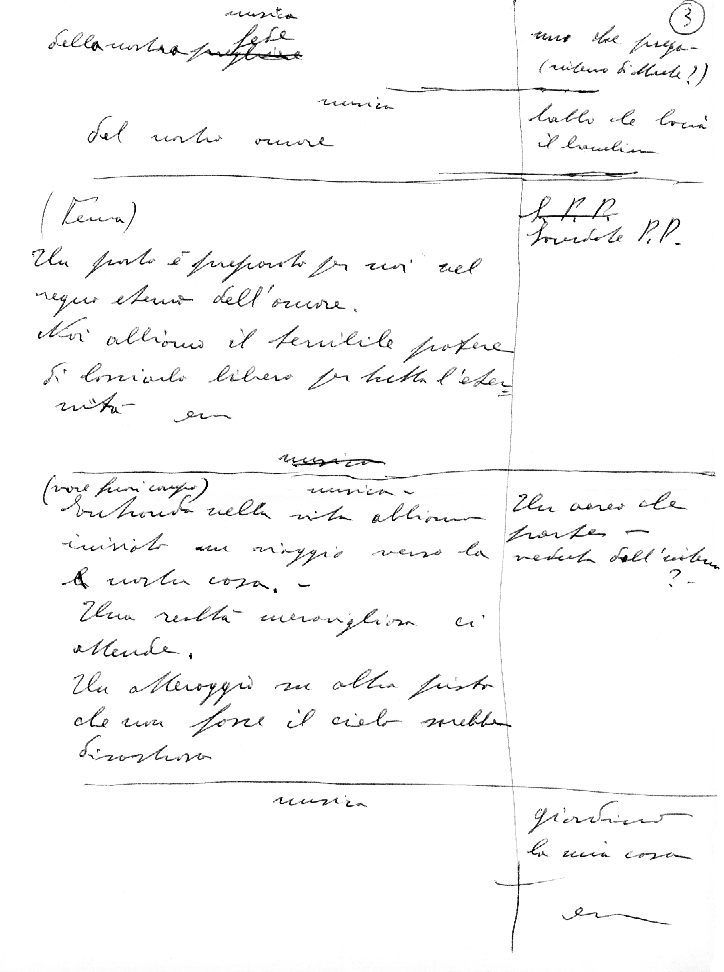 3
musica
fede
della nostra preghiera
uno che prega-
(interno di Marte?)
musica
del nostro amore
babbo che bacia
il bambino
(Tema)
S. P. P.
Sacerdote P.P.
Un posto è preparato per noi nel
regno eterno dell'amore.
Noi abbiamo il terribile potere
di lasciarlo libero per tutta l'eter=
nità
musica
(voce fuori campo)
musica -
Entrando nella vita abbiamo
iniziato un viaggio verso la
nostra casa. -
Una realtà meravigliosa ci
attende.
Un atterraggio su altra pista
che non fosse il cielo sarebbe
disastroso
Un aereo che
parte -
veduta dall'interno
? -
musica
giardino
la mia casa